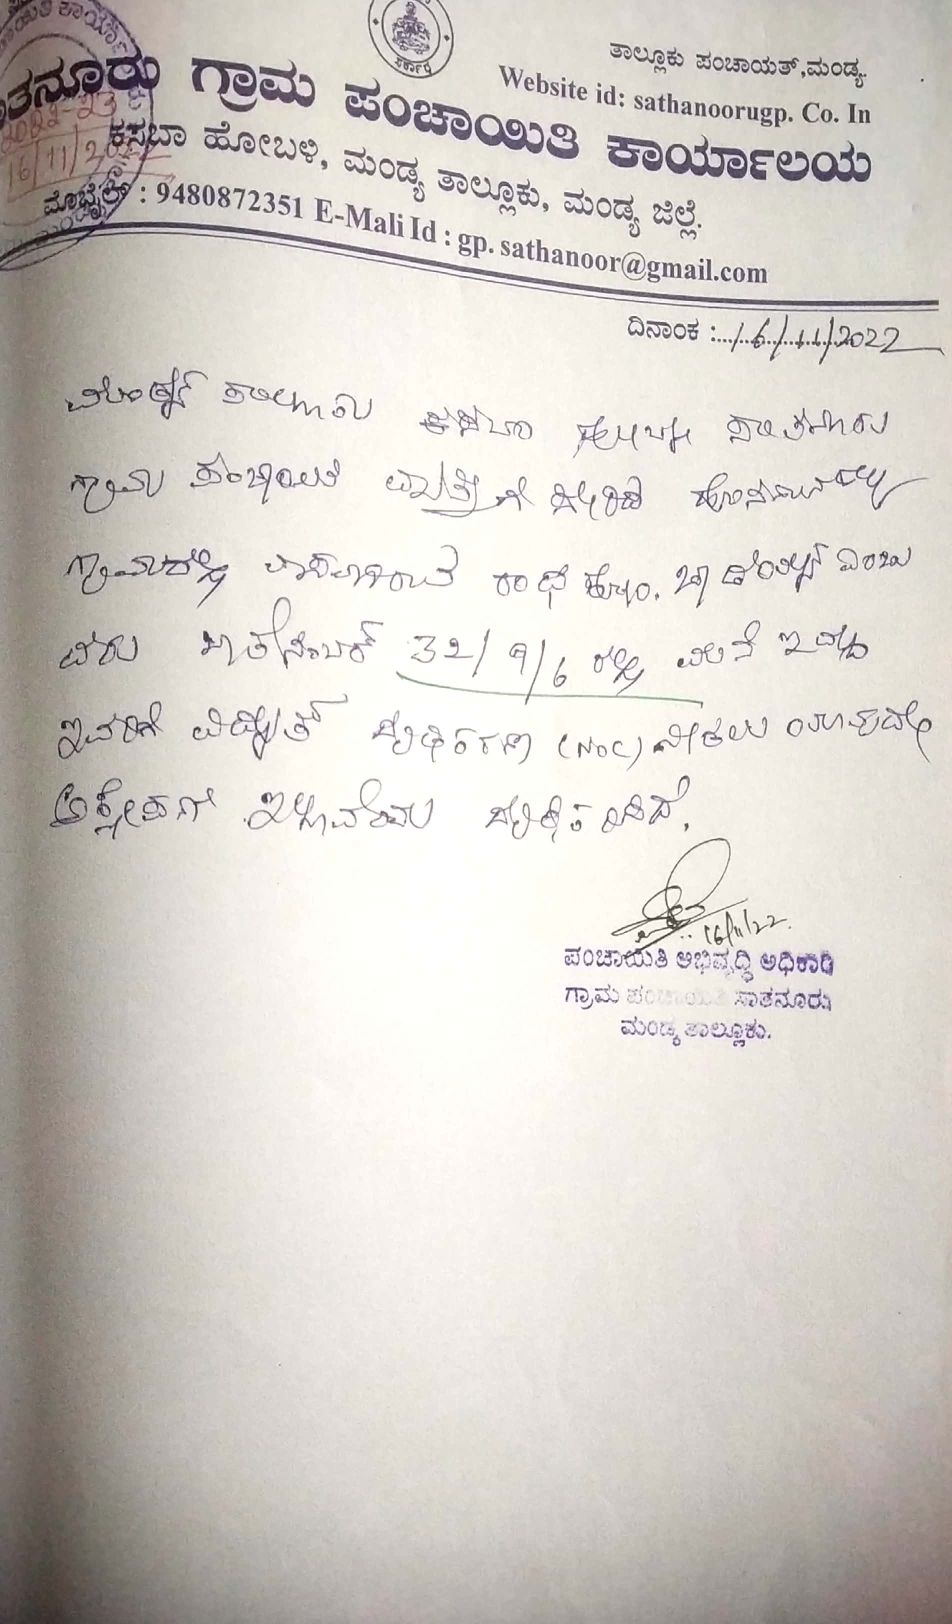 ತಾಲ್ಲೂಕು ಪಂಚಾಯತ್,ಮಂಡ್ಯ.
Website id: sathanoorugp. Co. In
ಸರ್ಕಾರ
ತನೂರು ಗ್ರಾಮ ಪಂಚಾಯಿತಿ ಕಾರ್ಯಾಲಯ
ಕಸಬಾ ಹೋಬಳಿ, ಮಂಡ್ಯ ತಾಲ್ಲೂಕು, ಮಂಡ್ಯ ಜಿಲ್ಲೆ.
ಮೊಬೈಲ್ : 9480872351 E-Mali Id : gp. sathanoor@gmail.com
2022-23
16/11/2
ದಿನಾಂಕ : 16/11/2022
ಮಂಡ್ಯ ತಾಲ್ಲೂಕು ಕಸಬಾ ಹೋಬಳಿ ಸಾತನೂರು
ಗ್ರಾಮ ಪಂಚಾಯಿತಿ ವ್ಯಾಪ್ತಿಗೆ ಸೇರಿದ
ಗ್ರಾಮದಲ್ಲಿ ವಾಸವಾಗಿರುವ ರಾಧ ಕೋಂ. ಎಂಬು
ವರು ಖಾತೆ ನಂಬರ್ 32/9/6 ರಲ್ಲಿ ಮನೆ ಇದ್ದು
ಇವರಿಗೆ ವಿದ್ಯುತ್ (NOC) ನೀಡಲು ಯಾವುದೇ
ಆಕ್ಷೇಪಣೆ ಇಲ್ಲವೆಂದು
16/11/22.
ಪಂಚಾಯತಿ ಅಭಿವೃದ್ಧಿ ಅಧಿಕಾರಿ
ಗ್ರಾಮ ಪಂಚಾಯಿತಿ ಸಾತನೂರು
ಮಂಡ್ಯ ತಾಲ್ಲೂಕು.